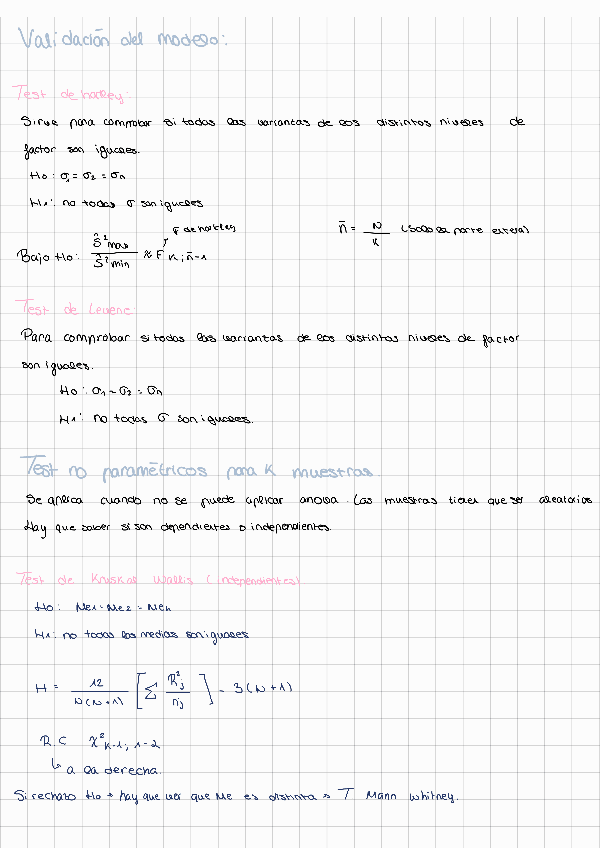 Validación del modelo:
Test de hartley:
Sirve para comprobar si todas las varianzas de los distintos niveles de
factor son iguales.
H0: σ1 = σ2 = σn
H1: no todas σ son iguales
F de hartley
Bajo H0: Ŝ²max / Ŝ²min ≈ F K; n̄-1
n̄ = N / K (solo la parte entera)
Test de Levene:
Para comprobar si todas las varianzas de los distintos niveles de factor
son iguales.
H0: σ1 = σ2 = σn
H1: no todas σ son iguales.
Test no paramétricos para K muestras
Se aplica cuando no se puede aplicar anova. Las muestras tienen que ser aleatorias
Hay que saber si son dependientes o independientes.
Test de Kruskal Wallis (independientes)
H0: Me1 = Me2 = Men
H1: no todas las medias son iguales
H = 12 / N(N+1) [ Σ R²j / nj ] - 3(N+1)
R.C χ² K-1; 1-α
↳ a la derecha.
Si rechazo H0 → hay que ver que Me es distinta → T Mann Whitney.